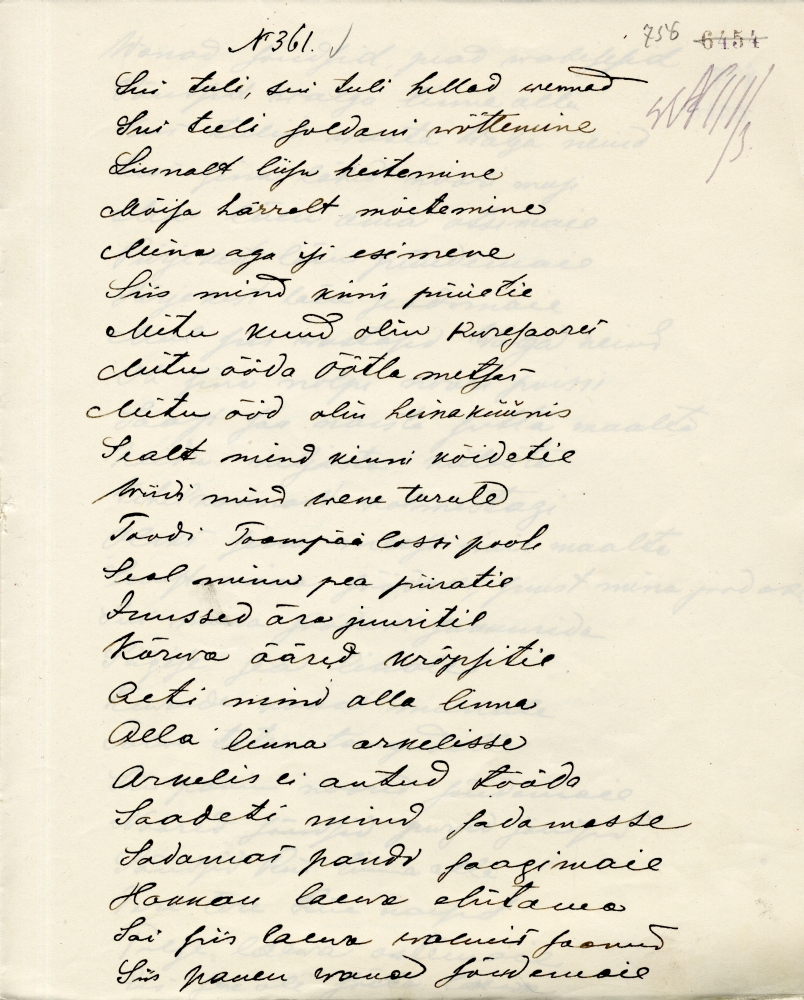 № 361.
756 6454
Sui tuli, sui tuli hellad wennad
Sui tuli soldani wõttemine
Liisnalt liisu heitemine
Mõisa härralt mõetemine
Mina aga isi esimene
Siis mind kinni püietie
Mitu kuud olin Kuresaares
Mitu ööda Öötla metsas
Mitu ööd olin heinaküünis
Sealt mind kinni köidetie
Wiidi mind wene turule
Toodi Toompää lossi poole
Seal minu pea piiratie
Juussed ära juuritie
Kõrwa ääred kröpsitie
Aeti mind alla linna
Alla linna arkelisse
Arkelis ei antud tööda
Saadeti mind sadamasse
Sadamas pandi saagimaie
Hakkan laewa ehitama
Sai siis laewa walmis saanud
Siis panen wanad sõudemaie